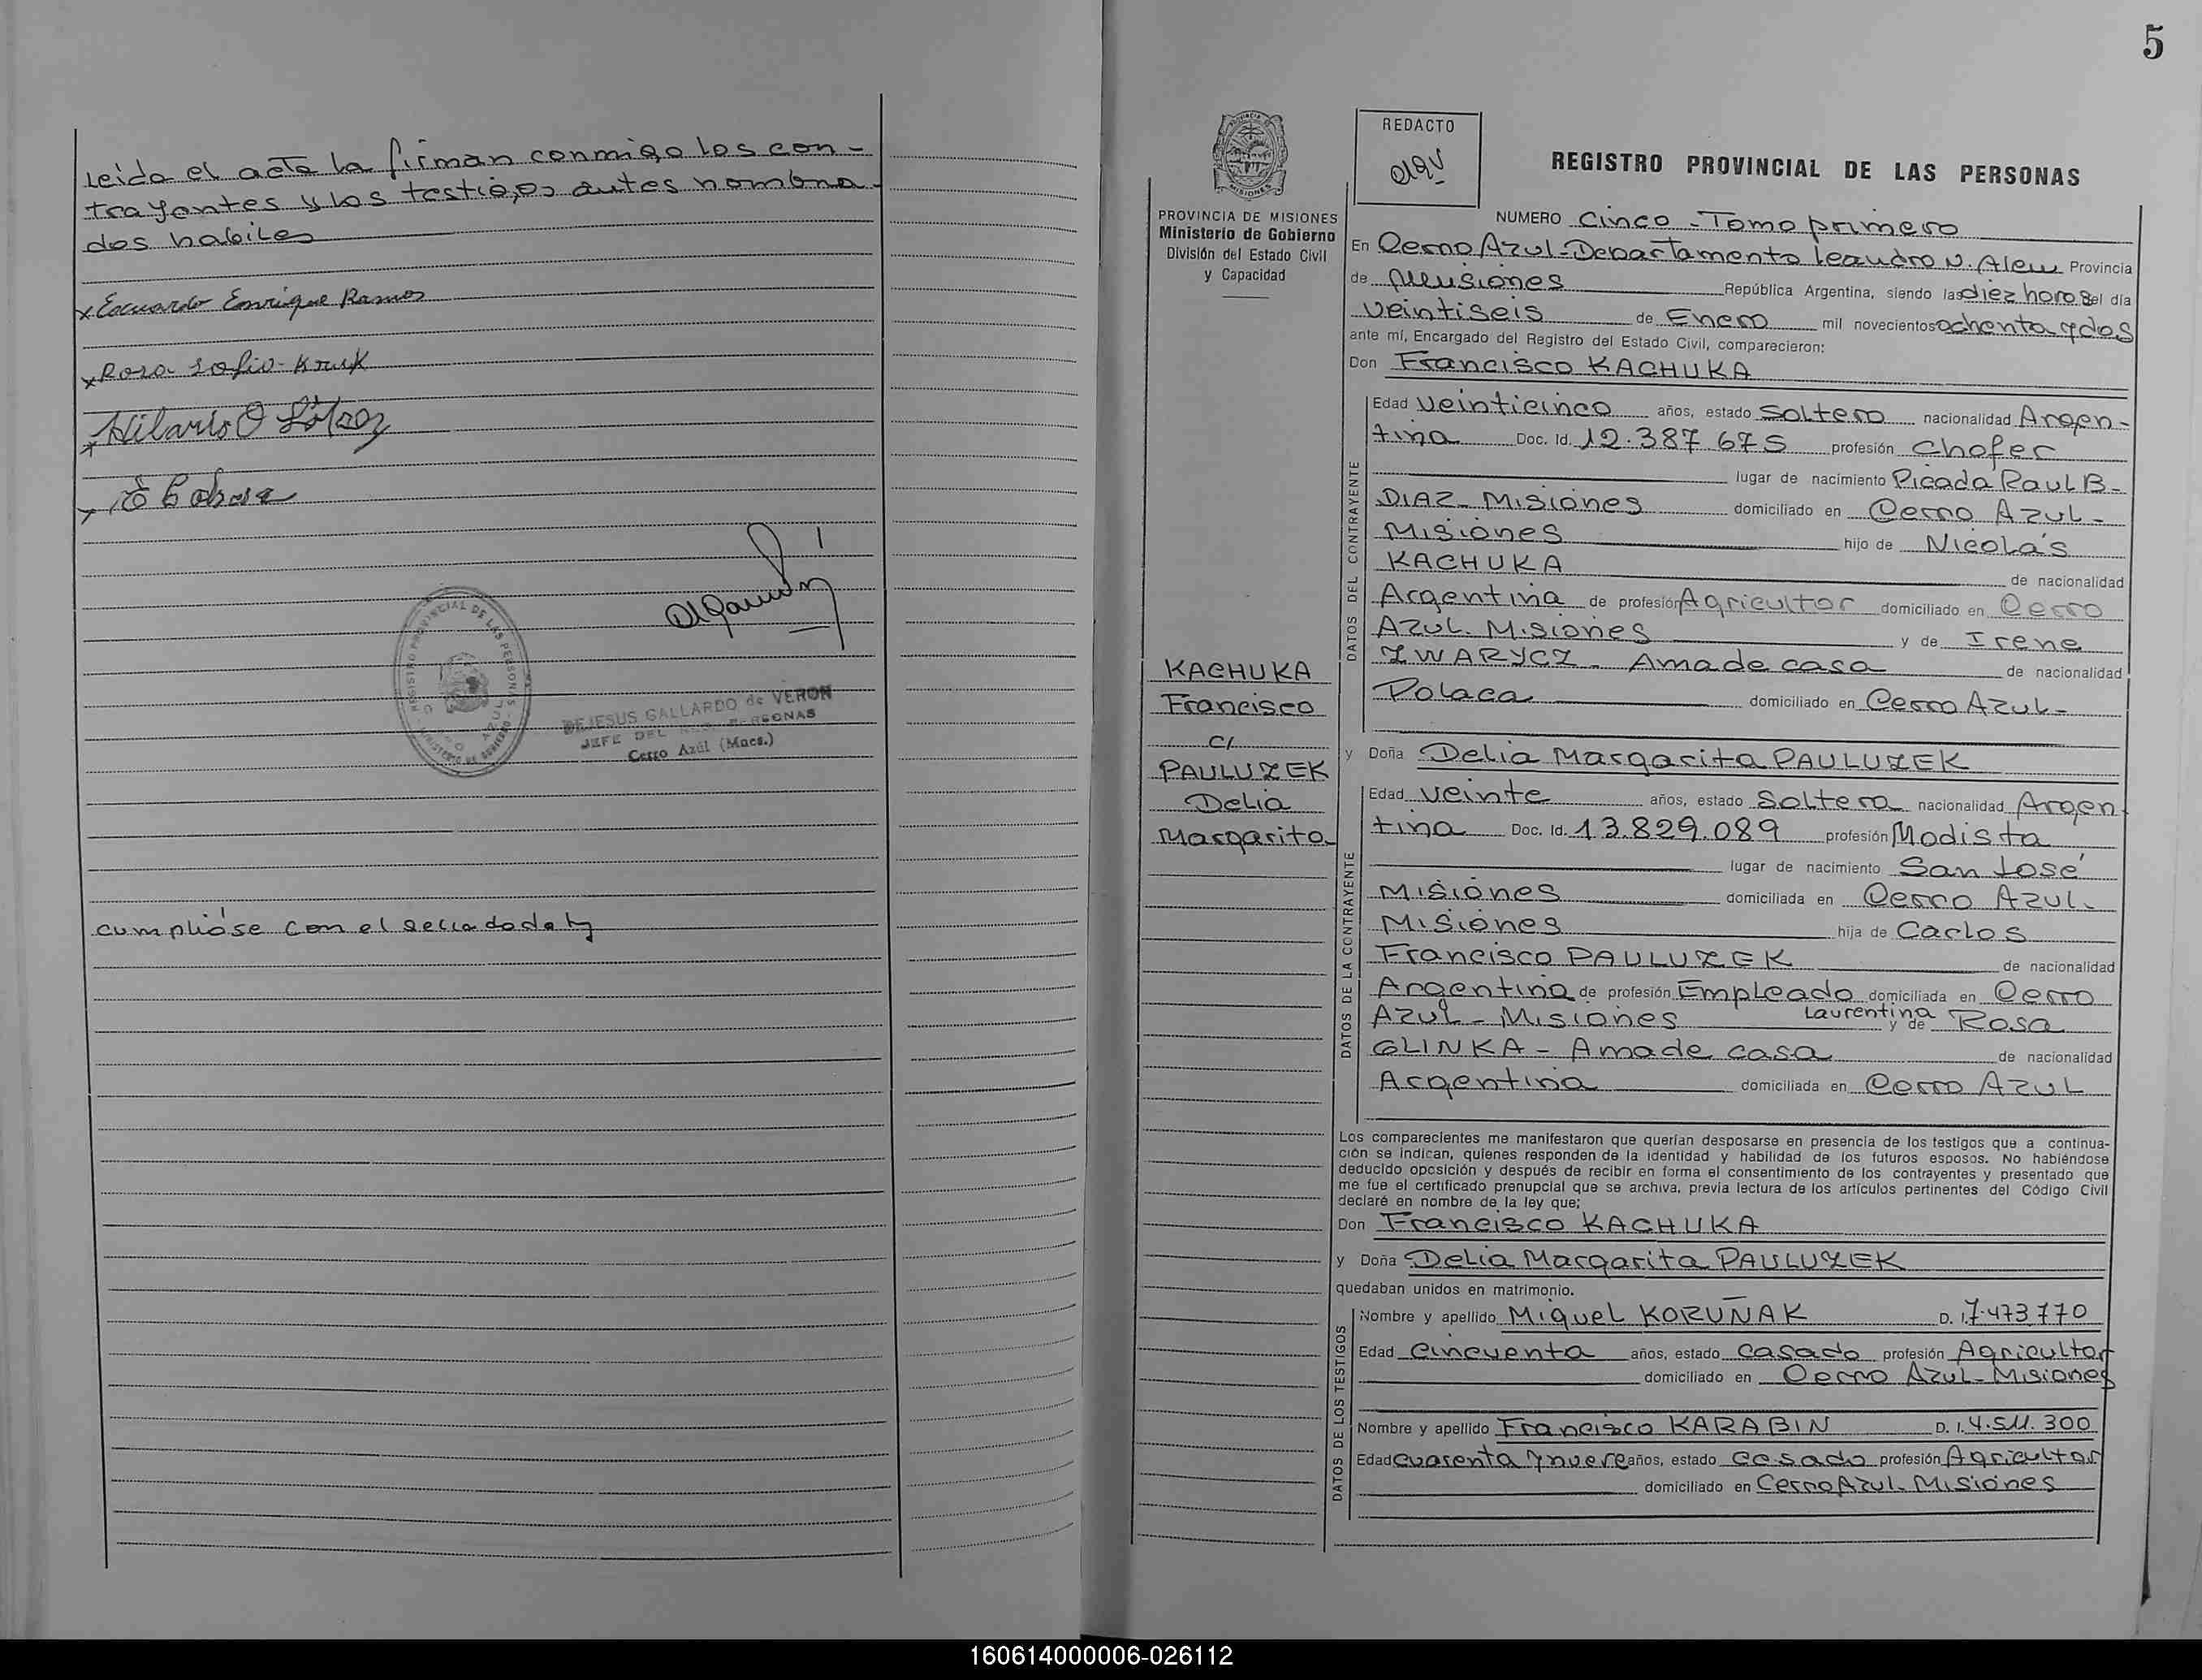 Leida el acta la firman conmigo los con-
trayentes y los testigos antes nombra
dos habiles
x Eduardo Enrique Ramos
x Rosa Sofia Kruk
x Hilario O
x
REGISTRO PROVINCIAL DE LAS PERSONAS
DEJESUS GALLARDO de VERON
JEFE DEL REG. PERSONAS
Cerro Azul (Mnes.)
cumplióse con el sellado de ley
5
PROVINCIA DE MISIONES
Ministerio de Gobierno
División del Estado Civil
y Capacidad
REDACTO
KACHUKA
Francisco
c/
PAULUZEK
Delia
Margarita
REGISTRO PROVINCIAL DE LAS PERSONAS
NUMERO Cinco - Tomo primero
En Cerro Azul - Departamento Leandro N. Alem Provincia
de Misiones República Argentina, siendo las diez horas del día
veintiseis de Enero mil novecientos ochenta y dos
ante mí, Encargado del Registro del Estado Civil, comparecieron:
Don Francisco KACHUKA
DATOS DEL CONTRAYENTE
Edad veinticinco años, estado soltero nacionalidad Argen-
tina Doc. Id. 12.387.675 profesión chofer
lugar de nacimiento Picada Raul B-
DIAZ - Misiones domiciliado en Cerro Azul -
Misiones hijo de Nicolás
KACHUKA de nacionalidad
Argentina de profesión Agricultor domiciliado en Cerro
Azul. Misiones y de Irene
ZWARYCZ - Ama de casa de nacionalidad
Polaca domiciliado en Cerro Azul -
y Doña Delia Margarita PAULUZEK
DATOS DE LA CONTRAYENTE
Edad veinte años, estado soltera nacionalidad Argen
tina Doc. Id. 13.829.089 profesión Modista
lugar de nacimiento San José
Misiones domiciliada en Cerro Azul -
Misiones hija de Carlos
Francisco PAULUZEK de nacionalidad
Argentina de profesión Empleado domiciliada en Cerro
Azul - Misiones y de Laurentina Rosa
GLINKA - Ama de casa de nacionalidad
Argentina domiciliada en Cerro Azul
Los comparecientes me manifestaron que querían desposarse en presencia de los testigos que a continua-
ción se indican, quienes responden de la identidad y habilidad de los futuros esposos. No habiéndose
deducido oposición y después de recibir en forma el consentimiento de los contrayentes y presentado que
me fue el certificado prenupcial que se archiva, previa lectura de los artículos pertinentes del Código Civil
declaré en nombre de la ley que;
Don Francisco KACHUKA
y Doña Delia Margarita PAULUZEK
quedaban unidos en matrimonio.
DATOS DE LOS TESTIGOS
Nombre y apellido Miguel KORUÑAK D. I. 7.473.770
Edad cincuenta años, estado casado profesión Agricultor
domiciliado en Cerro Azul - Misiones
Nombre y apellido Francisco KARABIN D. I. 4.511.300
Edad cuarenta y nueve años, estado casado profesión Agricultor
domiciliado en Cerro Azul. Misiones
160614000006-026112